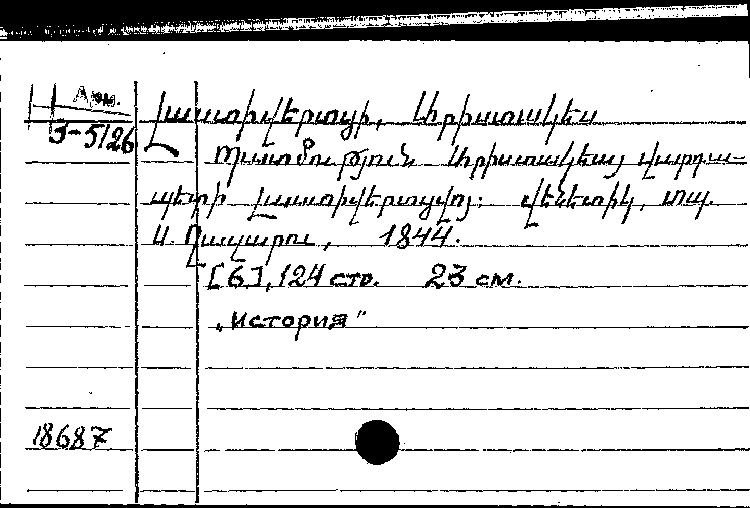 Арм.
J-5/26
Լաստիվերտցի, Արիստակես
Պատմություն Արիստակեայ վարդա-
պետի Լաստիվերտցւոյ: Վենետիկ, տպ.
Ս. Ղազարու, 1844.
[6], 124 стр. 23 см.
„История"
18687